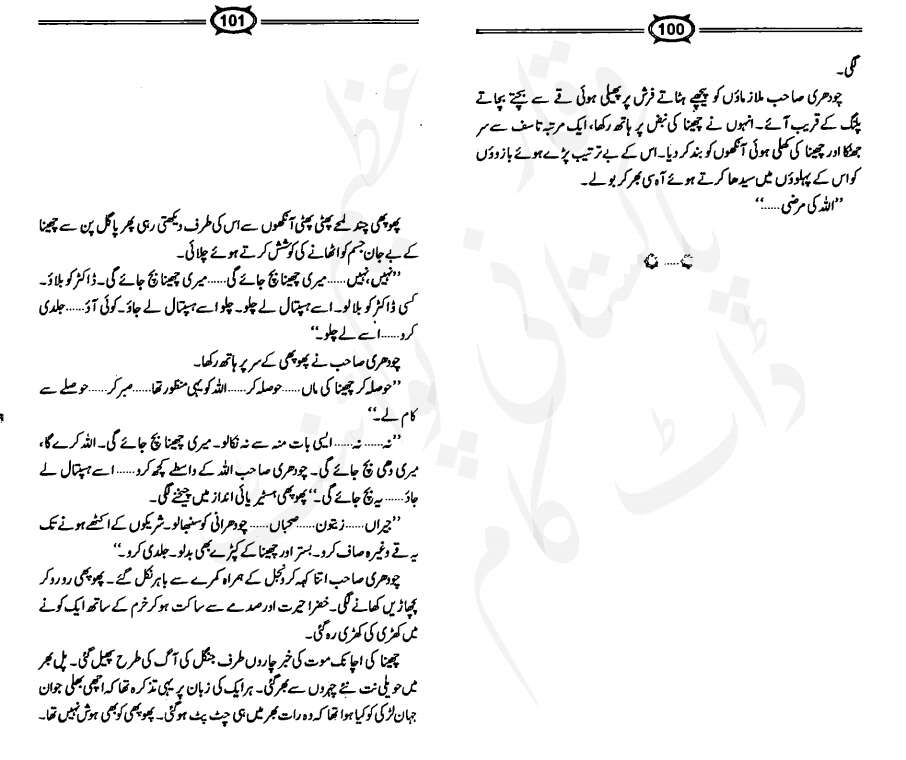 100
لگی۔
چودھری صاحب ملازماؤں کو پیچھے ہٹاتے فرش پر پھیلی ہوئی قے سے بچتے بچاتے
پلنگ کے قریب آئے۔ انہوں نے چھینا کی نبض پر ہاتھ رکھا، ایک مرتبہ تاسف سے سر
جھٹکا اور چھینا کی کھلی ہوئی آنکھوں کو بند کر دیا۔ اس کے بے ترتیب پڑے ہوئے بازوؤں
کو اس کے پہلوؤں میں سیدھا کرتے ہوئے آہ سی بھر کر بولے۔
”اللہ کی مرضی......“
101
پھوپھی چند لمحے پھٹی پھٹی آنکھوں سے اس کی طرف دیکھتی رہی پھر پاگل پن سے چھینا
کے بے جان جسم کو اٹھانے کی کوشش کرتے ہوئے چلائی۔
”نہیں، نہیں...... میری چھینا بچ جائے گی...... میری چھینا بچ جائے گی۔ ڈاکٹر کو بلاؤ۔
کسی ڈاکٹر کو بلا لو۔ اسے ہسپتال لے چلو۔ چلو اسے ہسپتال لے جاؤ۔ کوئی آؤ...... جلدی
کرو...... اسے لے چلو۔“
چودھری صاحب نے پھوپھی کے سر پر ہاتھ رکھا۔
”حوصلہ کر چھینا کی ماں...... حوصلہ کر...... اللہ کو یہی منظور تھا...... صبر کر...... حوصلے سے
کام لے۔“
”نہ...... نہ...... ایسی بات منہ سے نہ نکالو۔ میری چھینا بچ جائے گی۔ اللہ کرے گا،
میری دھی بچ جائے گی۔ چودھری صاحب اللہ کے واسطے کچھ کرو...... اسے ہسپتال لے
جاؤ...... یہ بچ جائے گی۔“ پھوپھی ہسٹیریائی انداز میں چیخنے لگی۔
”جیراں...... زیتون...... صحباں...... چودھرانی کو سنبھالو۔ شریکوں کے اکٹھے ہونے تک
یہ قے وغیرہ صاف کرو۔ بستر اور چھینا کے کپڑے بھی بدلو۔ جلدی کرو۔“
چودھری صاحب اتنا کہہ کر دنجل کے ہمراہ کمرے سے باہر نکل گئے۔ پھوپھی رو رو کر
پچھاڑیں کھانے لگی۔ خضرا حیرت اور صدمے سے ساکت ہو کر خرم کے ساتھ ایک کونے
میں کھڑی کی کھڑی رہ گئی۔
چھینا کی اچانک موت کی خبر چاروں طرف جنگل کی آگ کی طرح پھیل گئی۔ پل بھر
میں حویلی نت نئے چہروں سے بھر گئی۔ ہر ایک کی زبان پر یہی تذکرہ تھا کہ اچھی بھلی جوان
جہان لڑکی کو کیا ہوا تھا کہ وہ رات بھر میں ہی چٹ پٹ ہو گئی۔ پھوپھی کو بھی ہوش نہیں تھا۔